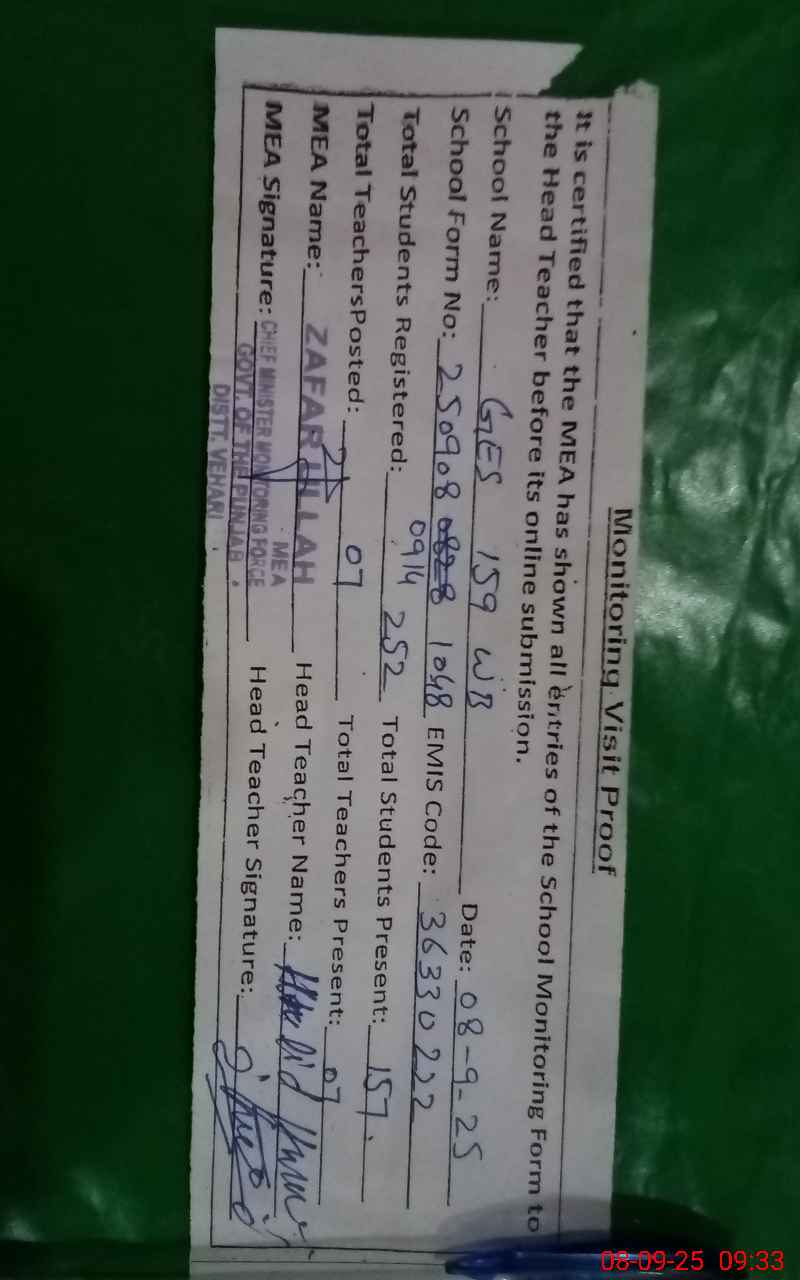 Monitoring Visit Proof
It is certified that the MEA has shown all entries of the School Monitoring Form to
the Head Teacher before its online submission.
School Name: GES 159 WB Date: 08-9-25
School Form No: 250908 0828 1048 EMIS Code: 36330222
0914
Total Students Registered: 252 Total Students Present: 157
Total TeachersPosted: 07 Total Teachers Present: 07
MEA Name: ZAFAR ULLAH Head Teacher Name:
MEA
MEA Signature: CHIEF MINISTER MONITORING FORCE Head Teacher Signature:
GOVT. OF THE PUNJAB
DISTT. VEHARI
08-09-25 09:33